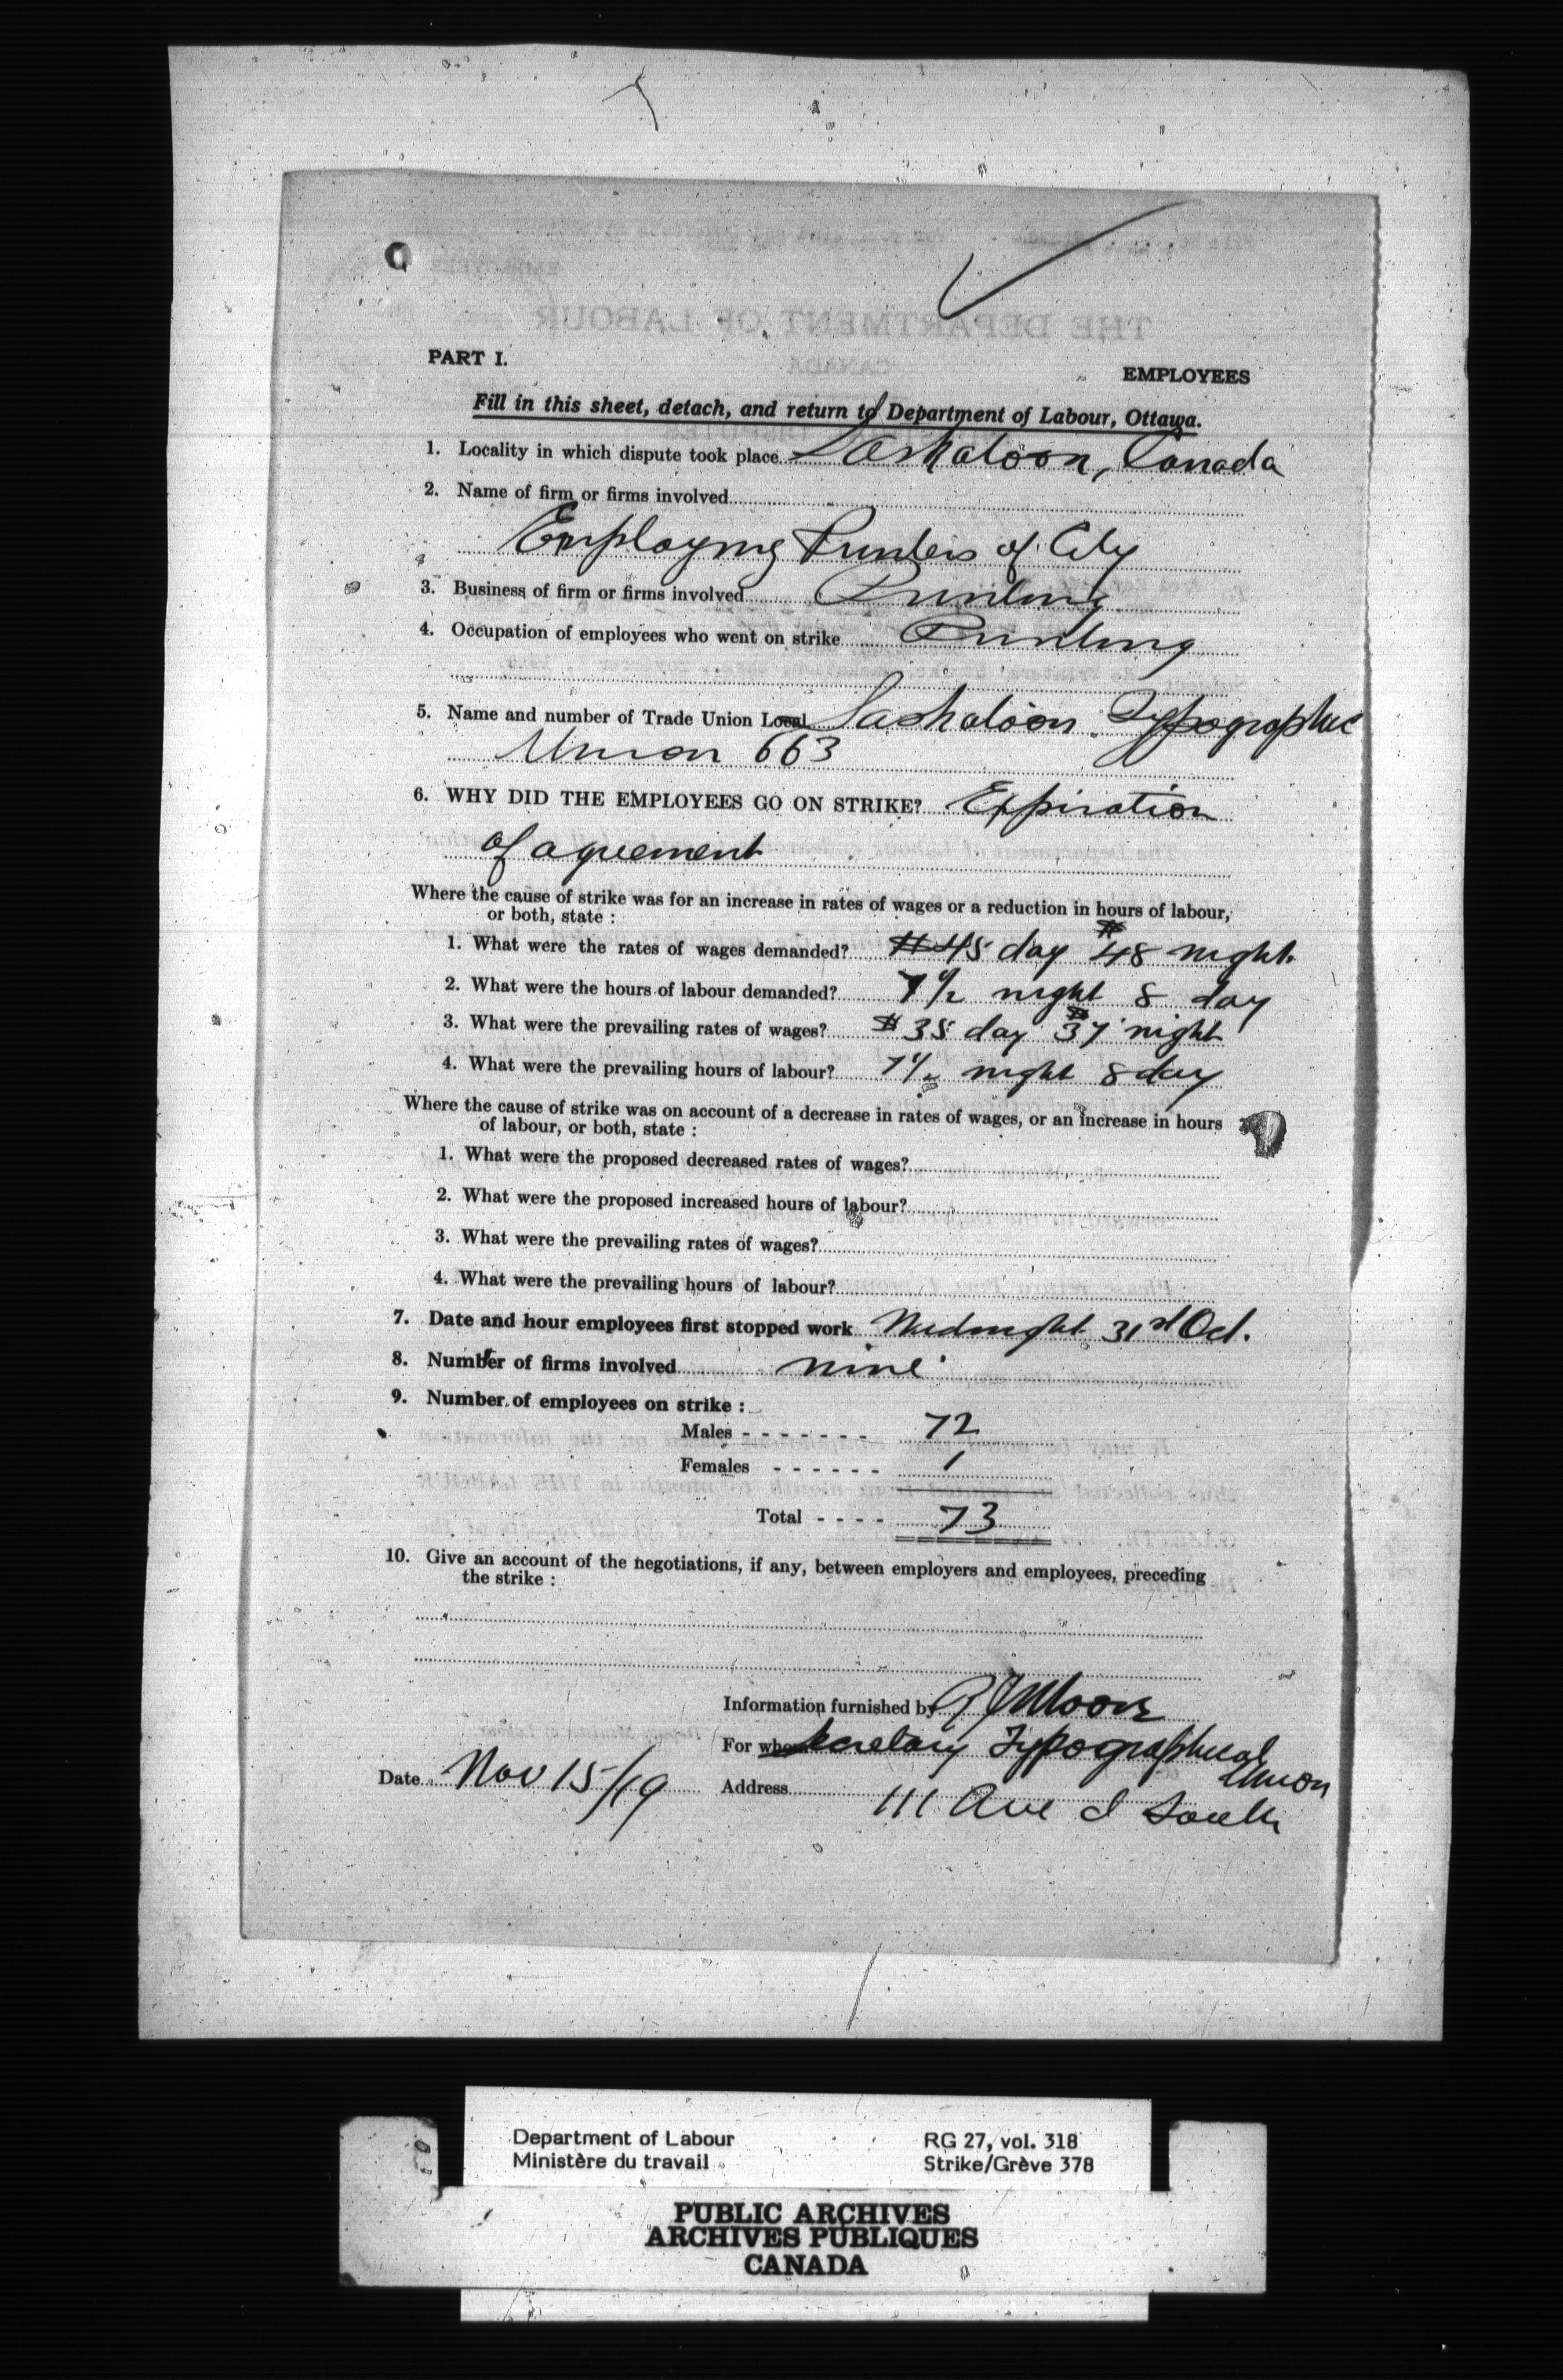 PART I.
EMPLOYEES
Fill in this sheet, detach, and return to Department of Labour, Ottawa.
1. Locality in which dispute took place Saskatoon, Canada
2. Name of firm or firms involved
Employing Printers of City
3. Business of firm or firms involved Printing
4. Occupation of employees who went on strike Printing
5. Name and number of Trade Union Local Saskatoon Typographic
Union 663
6. WHY DID THE EMPLOYEES GO ON STRIKE? Expiration
of agreement
Where the cause of strike was for an increase in rates of wages or a reduction in hours of labour,
or both, state :
1. What were the rates of wages demanded? $45 day $48 night
2. What were the hours of labour demanded? 7 1/2 night 8 day
3. What were the prevailing rates of wages? $35 day $37 night
4. What were the prevailing hours of labour? 7 1/2 night 8 day
Where the cause of strike was on account of a decrease in rates of wages, or an increase in hours
of labour, or both, state :
1. What were the proposed decreased rates of wages?
2. What were the proposed increased hours of labour?
3. What were the prevailing rates of wages?
4. What were the prevailing hours of labour?
7. Date and hour employees first stopped work Midnight 31st Oct.
8. Number of firms involved nine
9. Number of employees on strike :
Males - - - - - - - 72
Females - - - - - - 1
Total - - - - 73
10. Give an account of the negotiations, if any, between employers and employees, preceding
the strike :
Information furnished by Moore
For whom Secretary Typographical
Union
Date Nov 15/19 Address
111 Ave I South
Department of Labour RG 27, vol. 318
Ministère du travail Strike/Grève 378
PUBLIC ARCHIVES
ARCHIVES PUBLIQUES
CANADA